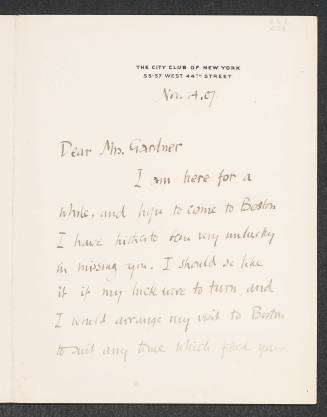 THE CITY CLUB OF NEW YORK
55-57 WEST 44TH STREET
Nov. 4. 07.
Dear Mrs. Gardner
I am here for a
while, and hope to come to Boston
I have hitherto been very unlucky
in missing you. I should so like
it if my luck were to turn and
I would arrange my visit to Boston
to suit any time which your